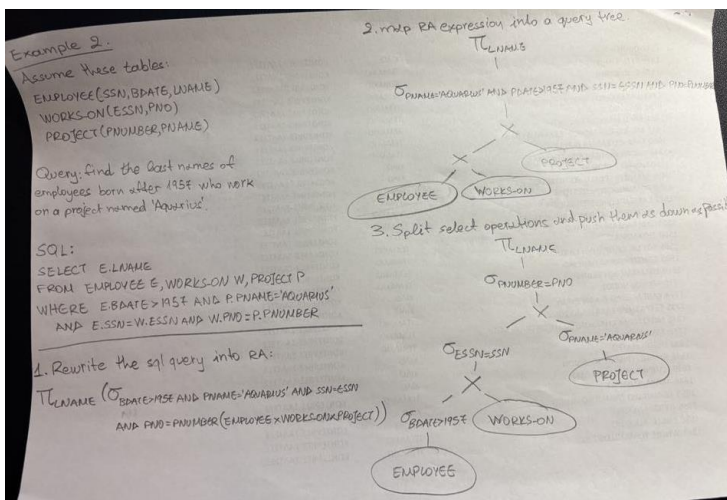 Example 2.
Assume these tables:
EMPLOYEE(SSN,BDATE,LNAME)
WORKS-ON(ESSN,PNO)
PROJECT(PNUMBER,PNAME)
Query: find the last names of
employees born after 1957 who work
on a project named 'Aquarius'.
SQL:
SELECT E.LNAME
FROM EMPLOYEE E, WORKS-ON W, PROJECT P
WHERE E.BDATE>1957 AND P.PNAME='AQUARIUS'
AND E.SSN=W.ESSN AND W.PNO=P.PNUMBER
1. Rewrite the sql query into RA:
π LNAME (σ BDATE>1957 AND PNAME='AQUARIUS' AND SSN=ESSN
AND PNO=PNUMBER (EMPLOYEE×WORKS-ON×PROJECT))
2. map RA expression into a query tree.
π LNAME
σ PNAME='AQUARIUS' AND BDATE>1957 AND SSN=ESSN AND PNO=PNUMBER
×
×
PROJECT
EMPLOYEE
WORKS-ON
3. Split select operations and push them as down as possi
π LNAME
σ PNUMBER=PNO
×
σ ESSN=SSN
σ PNAME='AQUARIUS'
×
PROJECT
σ BDATE>1957
WORKS-ON
EMPLOYEE